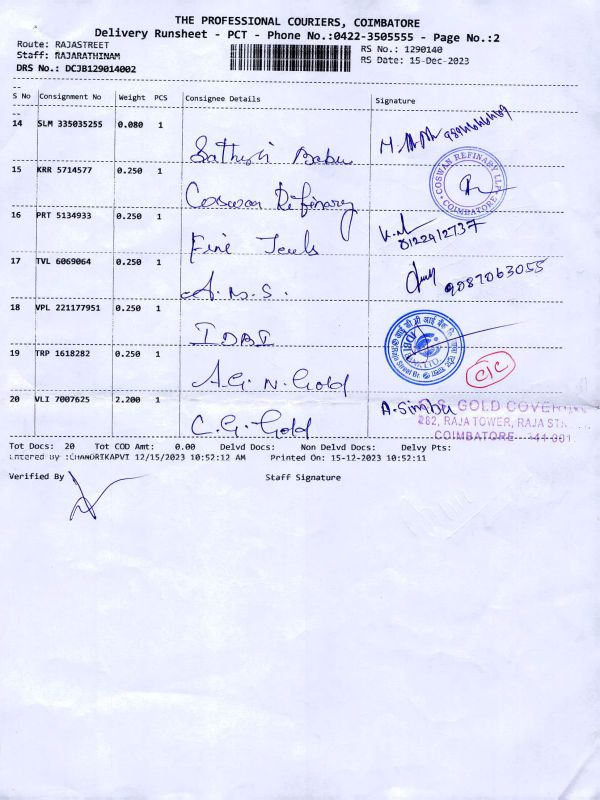 THE PROFESSIONAL COURIERS, COIMBATORE
Delivery Runsheet - PCT - Phone No.:0422-3505555 - Page No.:2
Route: RAJASTREET
Staff: RAJARATHINAM
DRS No.: DCJB129014002
RS No.: 1290140
RS Date: 15-Dec-2023
S No Consignment No Weight PCS Consignee Details Signature
14 SLM 335035255 0.080 1
Sathesh Babu
15 KRR 5714577 0.250 1
Coswan Refinary
COSWAN REFINARY LLP
COIMBATORE
16 PRT 5134933 0.250 1
Fine Jewls
8122912737
17 TVL 6069064 0.250 1
A.M.S.
9087063055
18 VPL 221177951 0.250 1
IDBI
19 TRP 1618282 0.250 1
A.G.N. Gold
C/C
20 VLI 7007625 2.200 1
C.G. Gold
A. Simbu
GOLD COVER
282, RAJA TOWER, RAJA ST
COIMBATORE
Tot Docs: 20 Tot COD Amt: 0.00 Delvd Docs: Non Delvd Docs: Delvy Pts:
Entered By :CHANDRIKAPVT 12/15/2023 10:52:12 AM Printed On: 15-12-2023 10:52:11
Verified By Staff Signature